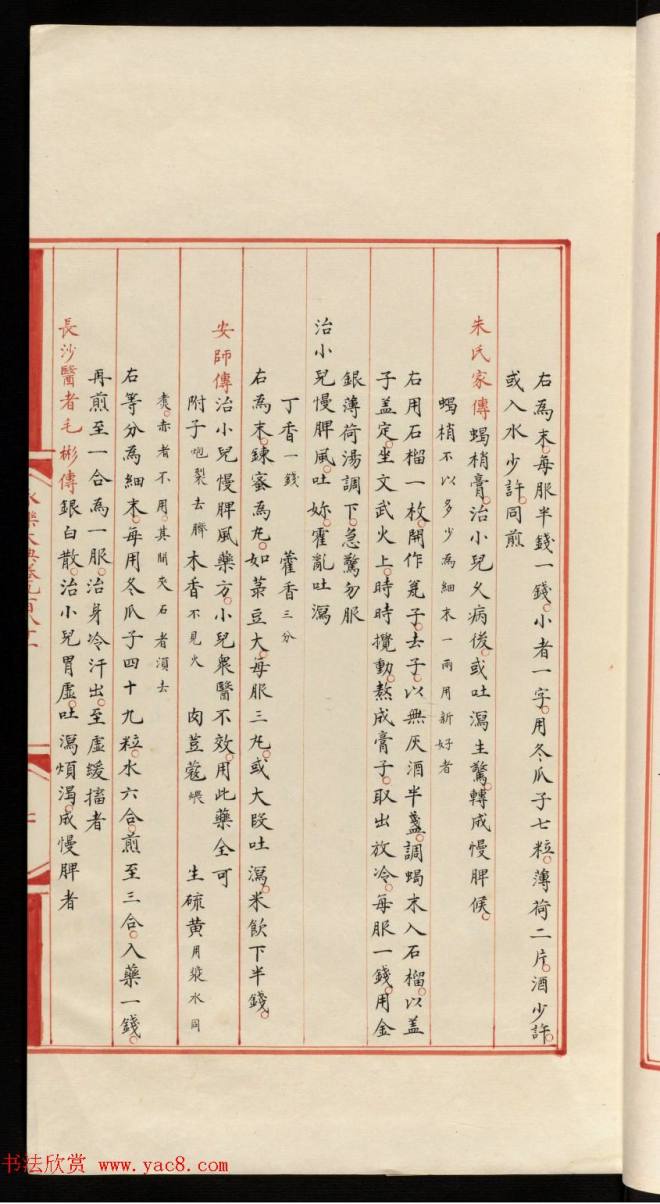 右為末每服半錢一錢小者一字用冬瓜子七粒薄荷二片酒少許
或入水少許同煎
朱氏家傳蝎梢膏治小兒久病後或吐瀉生驚轉成慢脾候
蝎梢不以多少為細末一兩用新好者
右用石榴一枚開作瓮子去子以無灰酒半盞調蝎末入石榴以蓋
子盖定坐文武火上時時攪動熬成膏子取出放冷每服一錢用金
銀薄荷湯調下急驚勿服
治小兒慢脾風吐妳霍亂吐瀉
丁香一錢 藿香三分
右為末鍊蜜為丸如菉豆大每服三丸或大段吐瀉米飲下半錢
安師傳治小兒慢脾風藥方小兒衆醫不效用此藥全可
附子炮裂去臍 木香不見火 肉荳蔻煨 生硫黄用漿水同
煑赤者不用其間夾石者湏去
右等分為細末每用冬瓜子四十九粒水六合煎至三合入藥一錢
再煎至一合為一服治身冷汗出至虛緩搐者
長沙醫者毛彬傳銀白散治小兒胃虛吐瀉煩渴成慢脾者
永樂大典卷九百八十一
书法欣赏 www.yac8.com